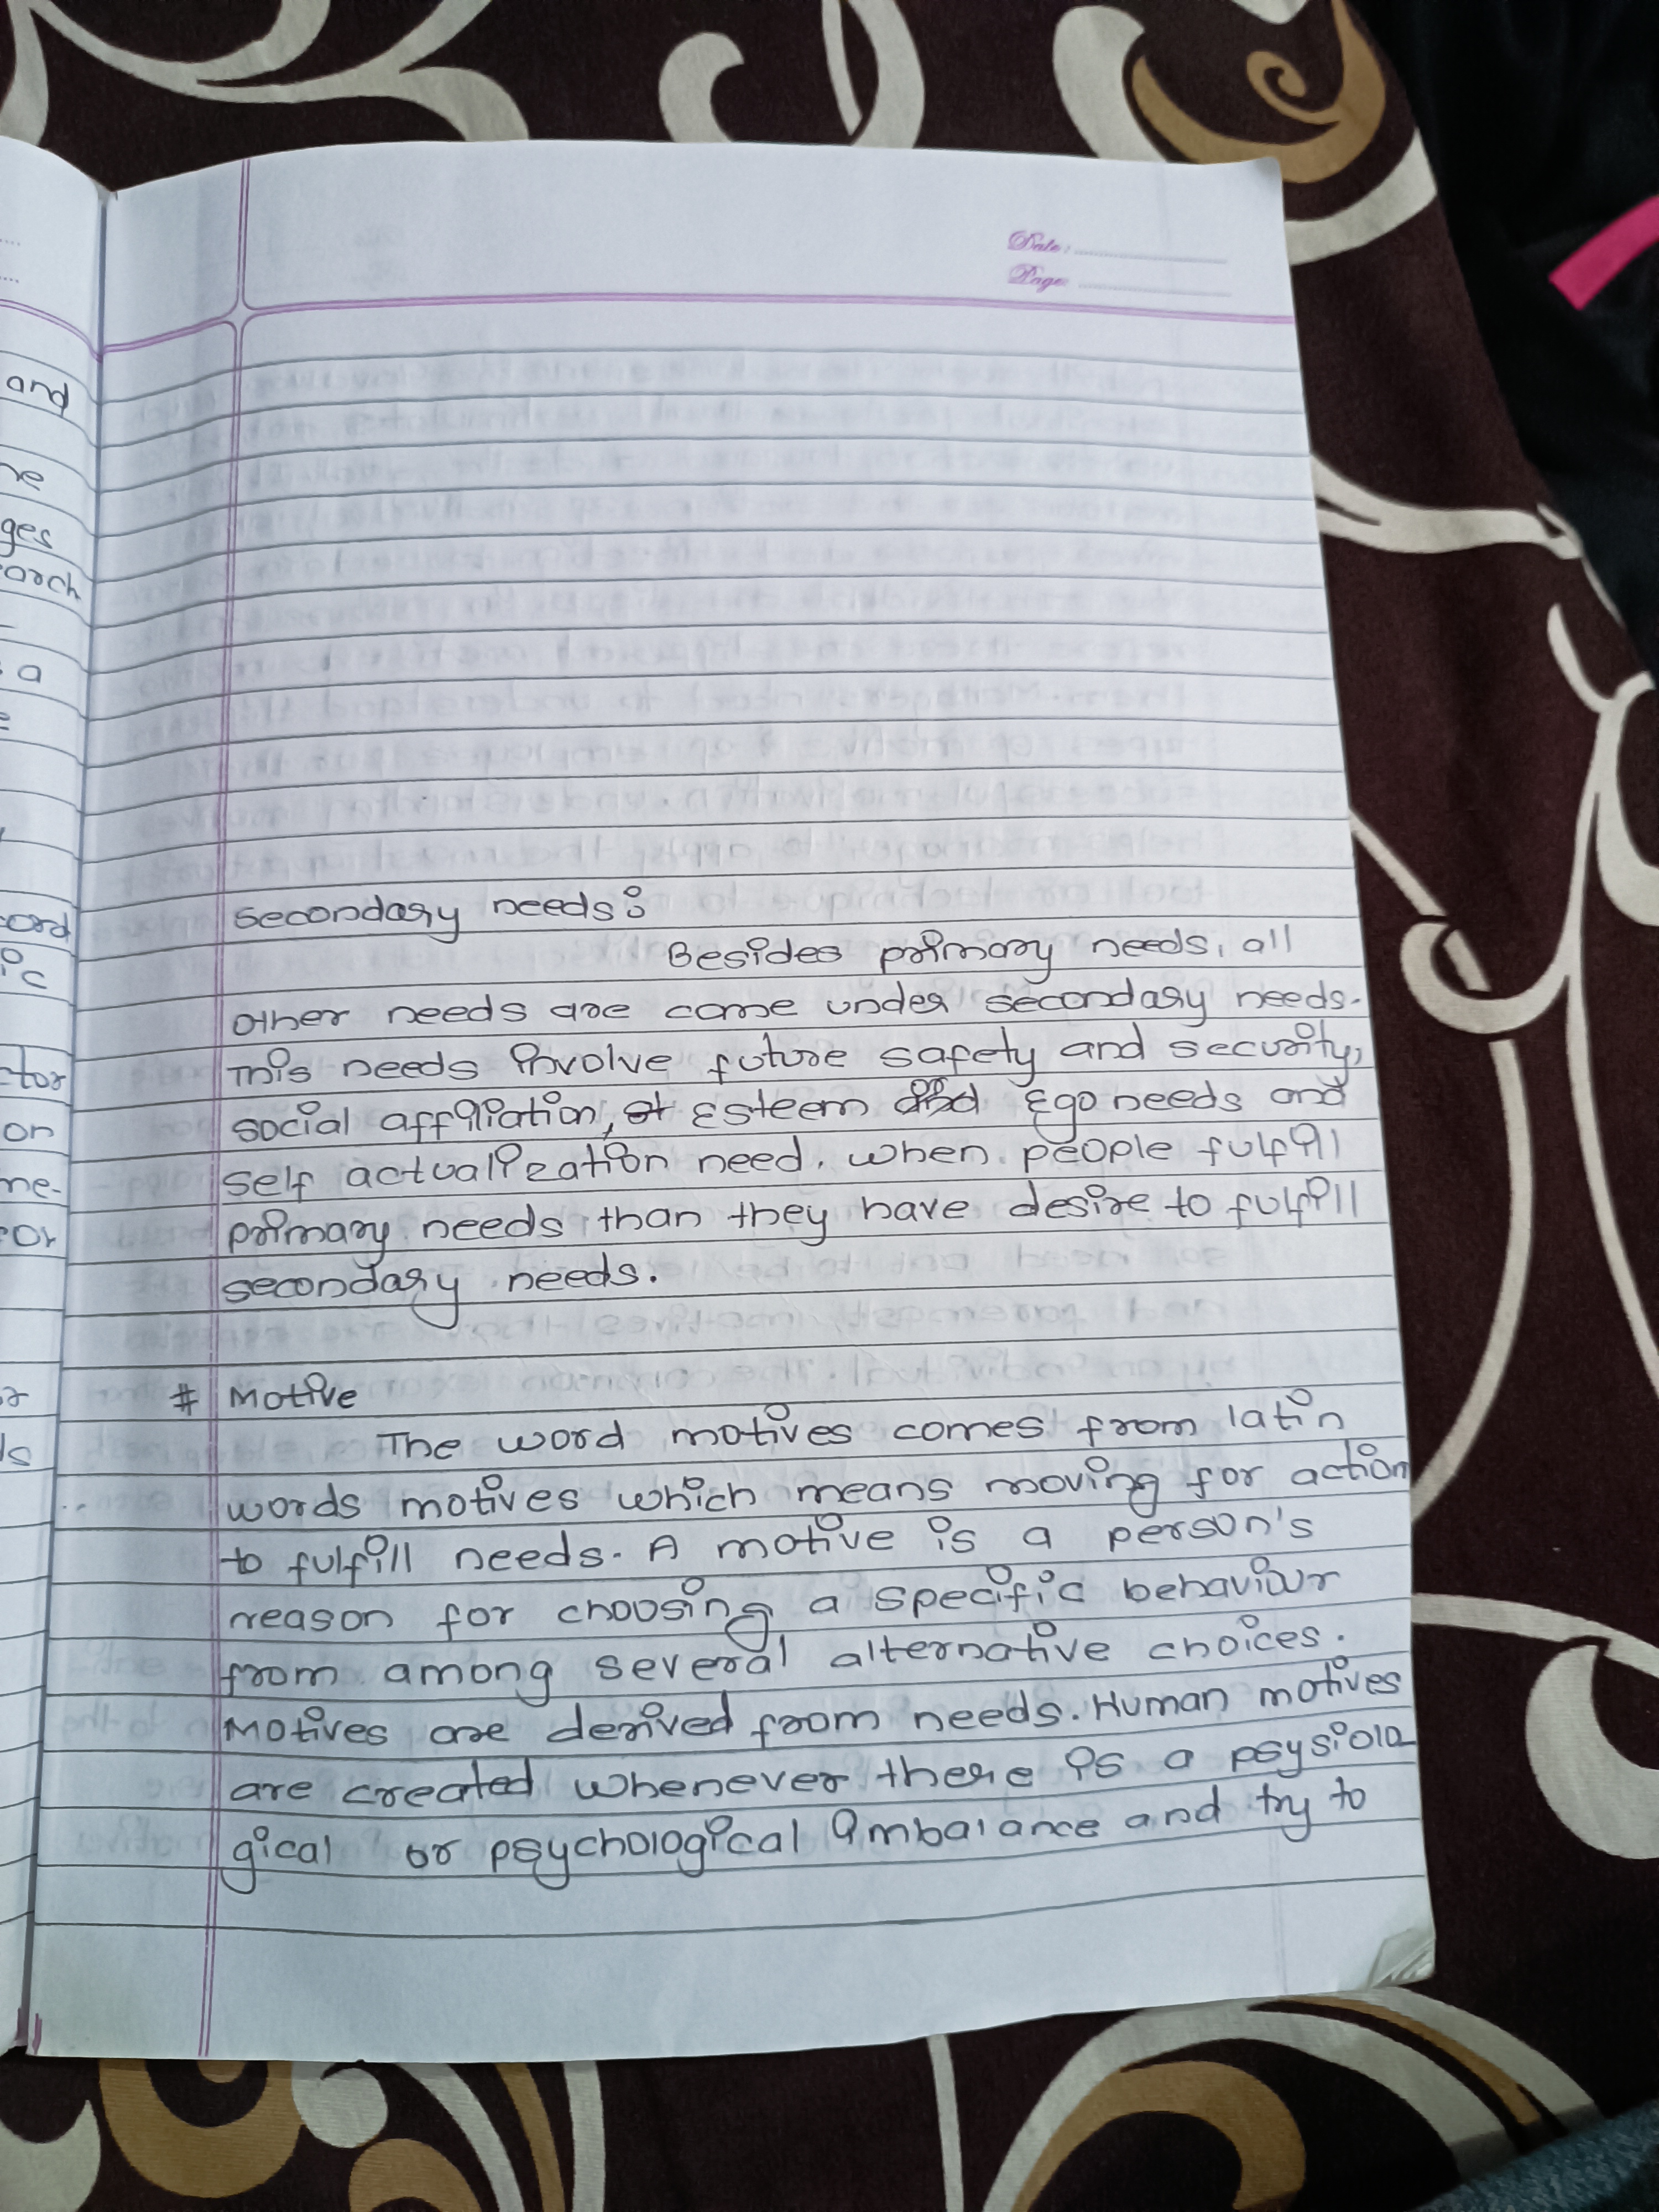 Date:
Page:
and
ges
a
secondary needs:
Besides primary needs, all
other needs are come under secondary needs.
This needs involve future safety and security,
social affiliation, Esteem Ego needs and
self actualization need. when people fulfill
primary needs, than they have desire to fulfill
secondary needs.
# Motive
The word motives comes from latin
words motives which means moving for action
to fulfill needs. A motive is a person's
reason for choosing a specific behaviour
from among several alternative choices.
Motives are derived from needs. Human motives
are created whenever there is a psysiolo
gical or psychological imbalance and try to
ord
ic
tor
on
me-
or